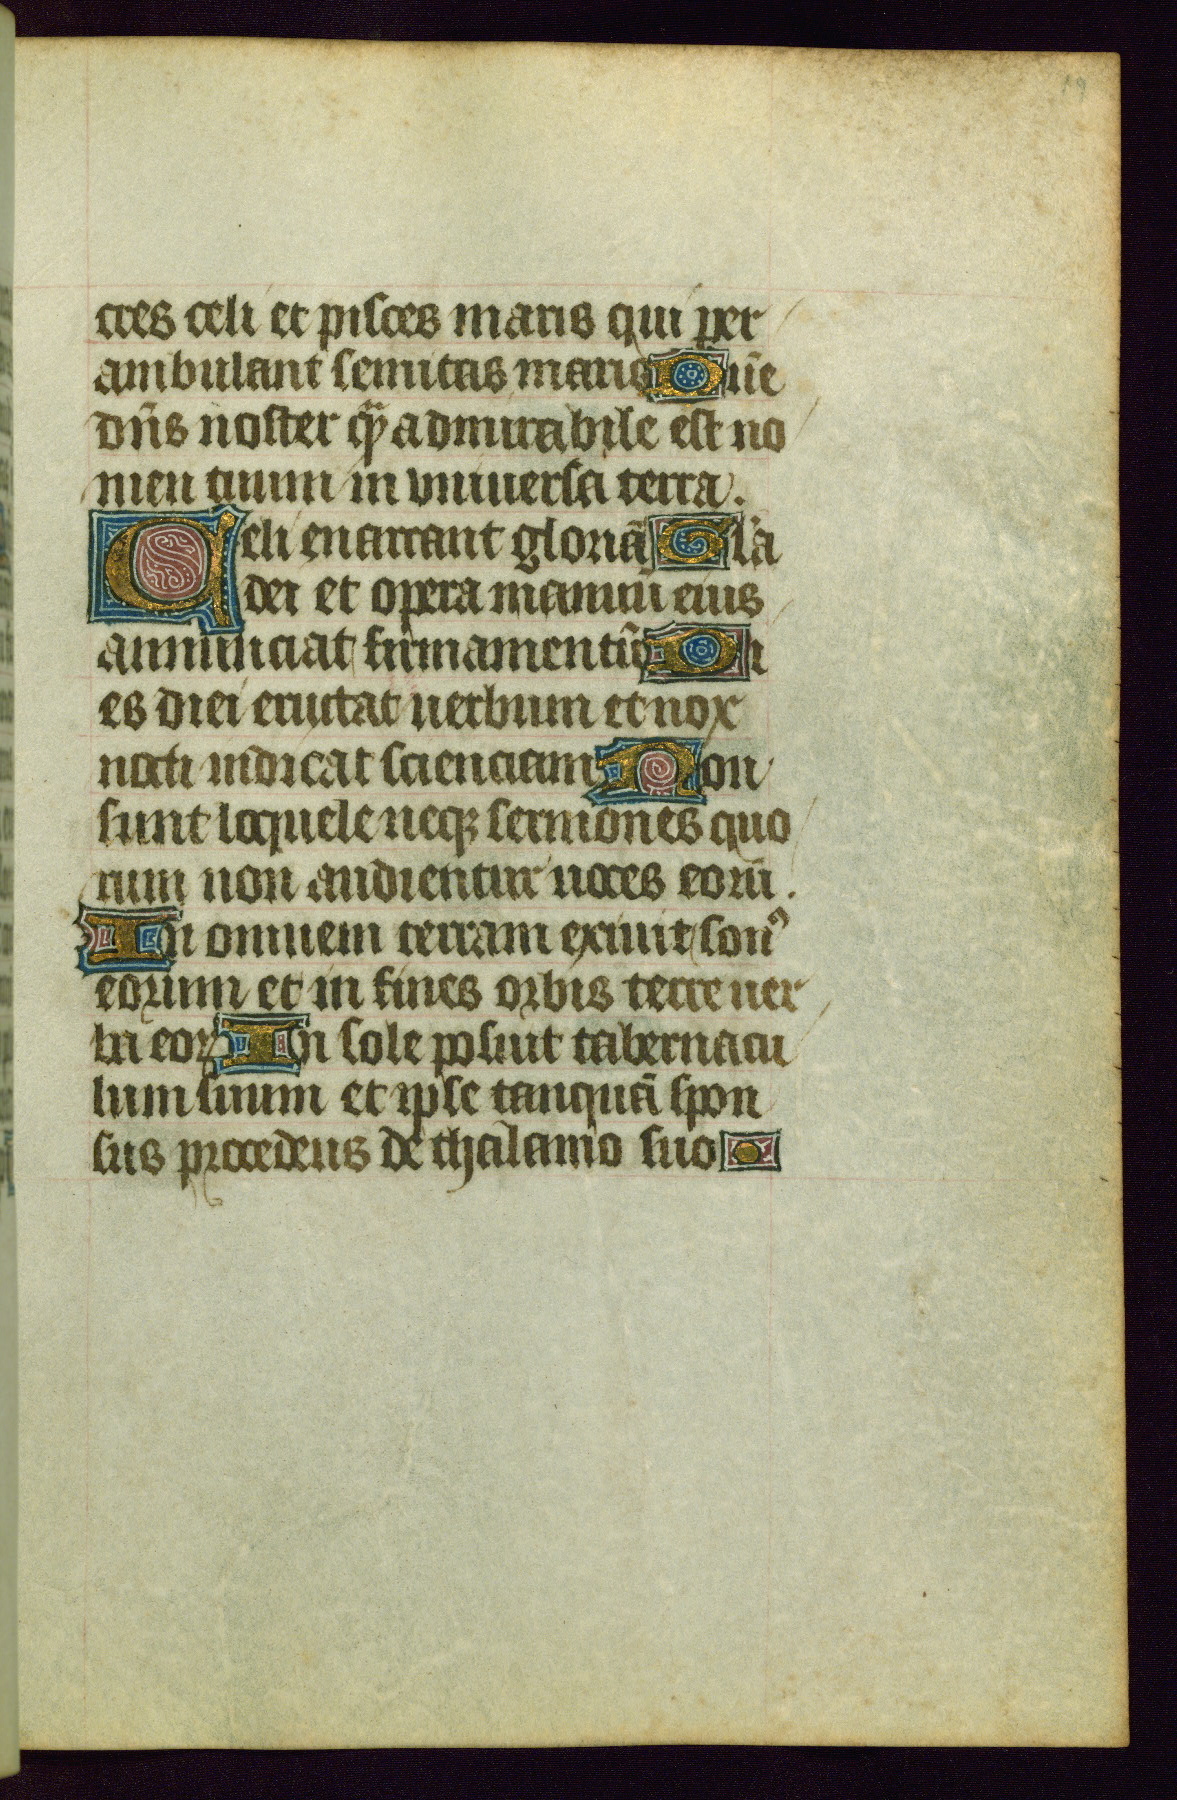 19
cres celi et pisces maris qui per
ambulant semitas maris Dn̄e
dn̄s noster qͫ admirabile est no
men tuum in vniuersa terra.
Celi enarrant gloriā Gl̄a
dei et opera manuū eius
annunciat firmamentū Di
es diei eructat uerbum et nox
nocti indicat scienciam Non
sunt loquele neqꝫ sermones quo
rum non audientur uoces eorū.
In omnem terram exiuit sonꝰ
eorum et in fines orbis terre uer
ba eoꝝ In sole posuit tabernacu
lum suum et ipse tanquā spon
sus procedens de thalamo suo